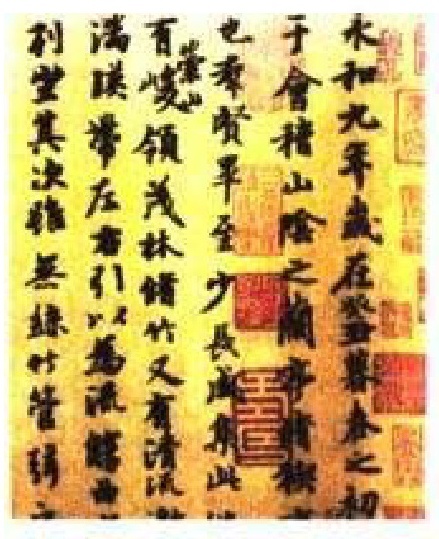 永和九年歲在癸丑暮春之初
于會稽山陰之蘭亭脩禊
也羣賢畢至少長咸集此
有崇山峻領茂林脩竹又有清流
湍暎帶左右引以爲流觴曲
列坐其次雖無絲竹管弦之